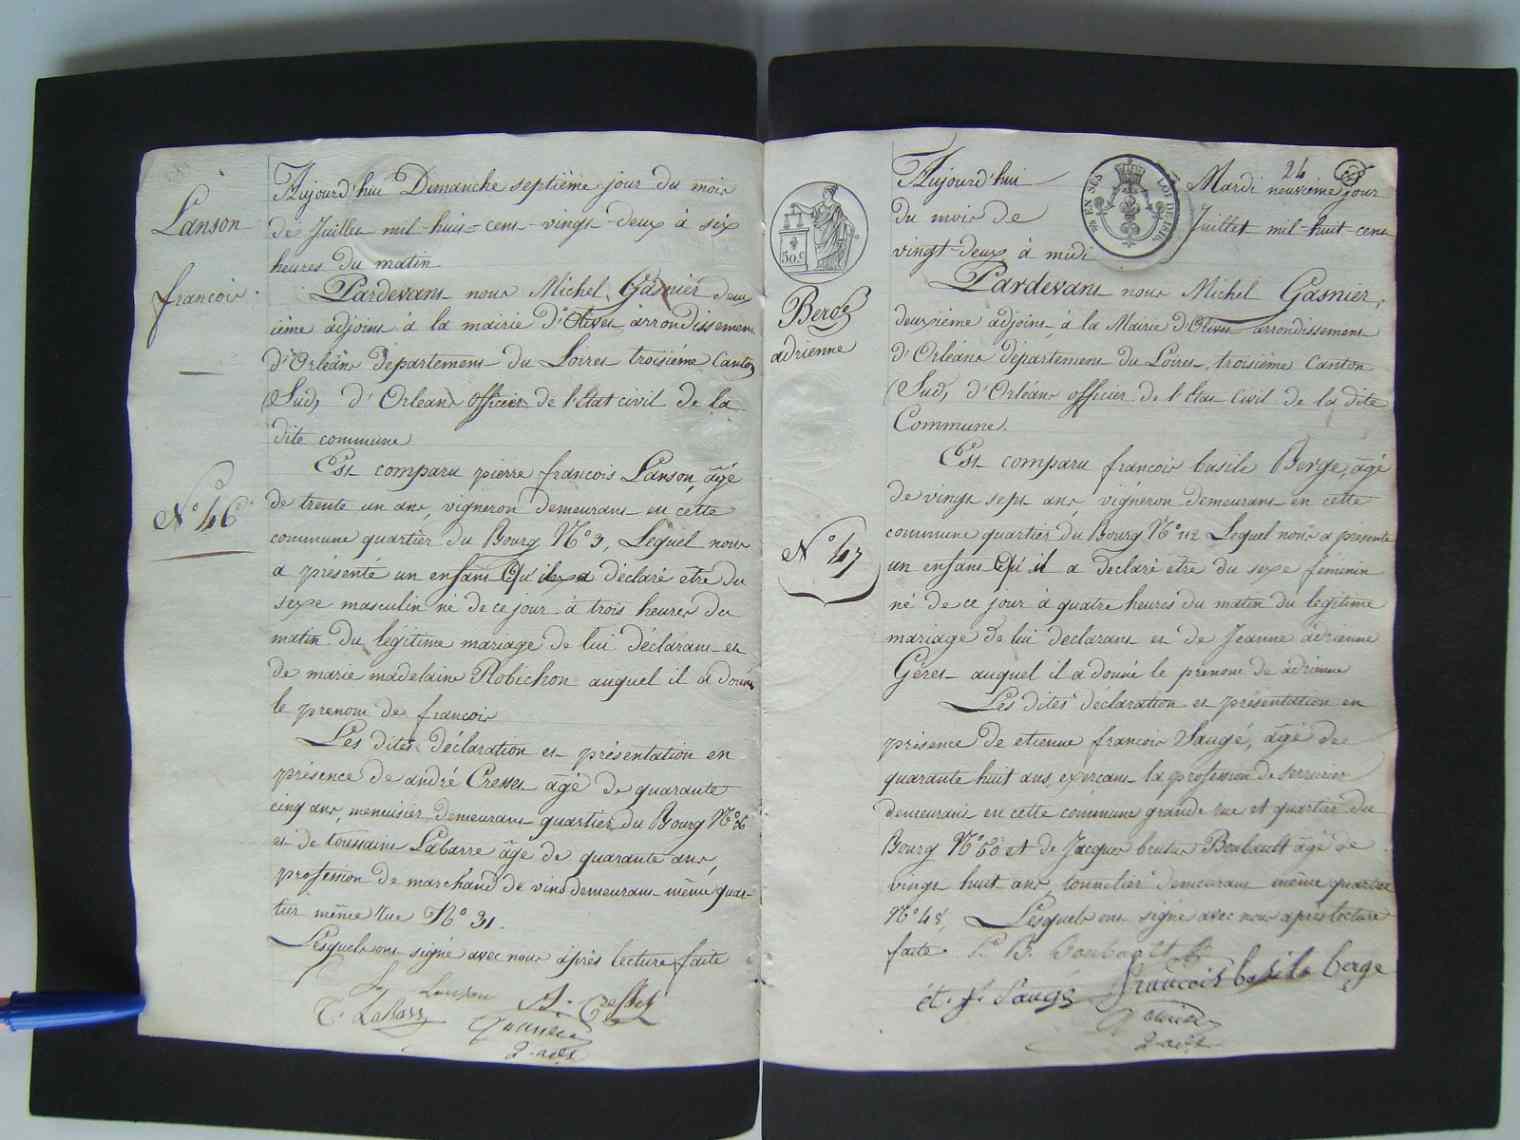 Lanson
francois
N.° 46
Aujourd'hui Dimanche septième jour du mois
de Juillet mil-huit-cent-vingt-deux à six
heures du matin
Pardevant nous Michel Gasnier deux
ième adjoint à la mairie d'Olivet arrondissement
d'Orléans département du Loiret troisième Canton
Sud, d'Orléans officier de l'Etat civil de la
dite commune
Est comparu pierre francois Lanson, âgé
de trente un ans, vigneron demeurant en cette
commune quartier du Bourg N° 3, Lequel nous
a présenté un enfant Qu'il a déclaré etre du
sexe masculin né de ce jour à trois heures du
matin du légitime mariage de lui déclarant et
de marie madelaine Robichon auquel il a donné
le prenom de francois
Les dites déclaration et présentation en
présence de andré Cresset âgé de quarante
cinq ans, menuisier demeurant quartier du Bourg N°
et de toussaint Labarre âgé de quarante ans,
profession de marchand de vins demeurant même quar-
tier même rue N° 31.
Lesquels ont signé avec nous après lecture faite
Lanson A. Cresset
T. Labarre Gasnier
30.c
Berge
adrienne
N.° 47
24
Aujourd'hui Mardi neuvième jour
du mois de Juillet mil-huit-cent
vingt-deux à midi
Pardevant nous Michel Gasnier,
deuxième adjoint à la Mairie d'Olivet arrondissement
d'Orléans département du Loiret, troisième Canton
Sud, d'Orléans officier de l'Etat Civil de la dite
Commune.
Est comparu francois basile Berge, âgé
de vingt sept ans, vigneron demeurant en cette
commune quartier du Bourg N° 112 Lequel nous a presenté
un enfant Qu'il a declaré etre du sexe féminin
né de ce jour à quatre heures du matin du légitime
mariage de lui declarant et de Jeanne adrienne
Geret auquel il a donné le prenom de adrienne
Les dites déclaration et présentation en
présence de etienne francois Saugé, âgé de
quarante huit ans exerçant la profession de serrurier
demeurant en cette commune grande rue et quartier du
Bourg N° 50 et de Jacques brutus Boubault âgé de
vingt huit ans, tonnelier demeurant même quartier
N° 48, Lesquels ont signé avec nous après lecture
faite J. B. boubault
francois basile berge
et. f. Saugé
Gasnier